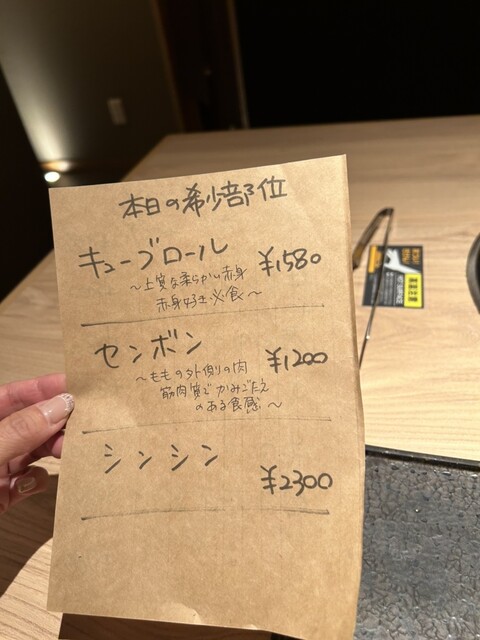 本日の希少部位
キューブロール ¥1580
～上質な柔らかい赤身
赤身好き必食～
センボン ¥1200
～ももの外側の肉
筋肉質でかみごたえ
のある食感～
シンシン ¥2300